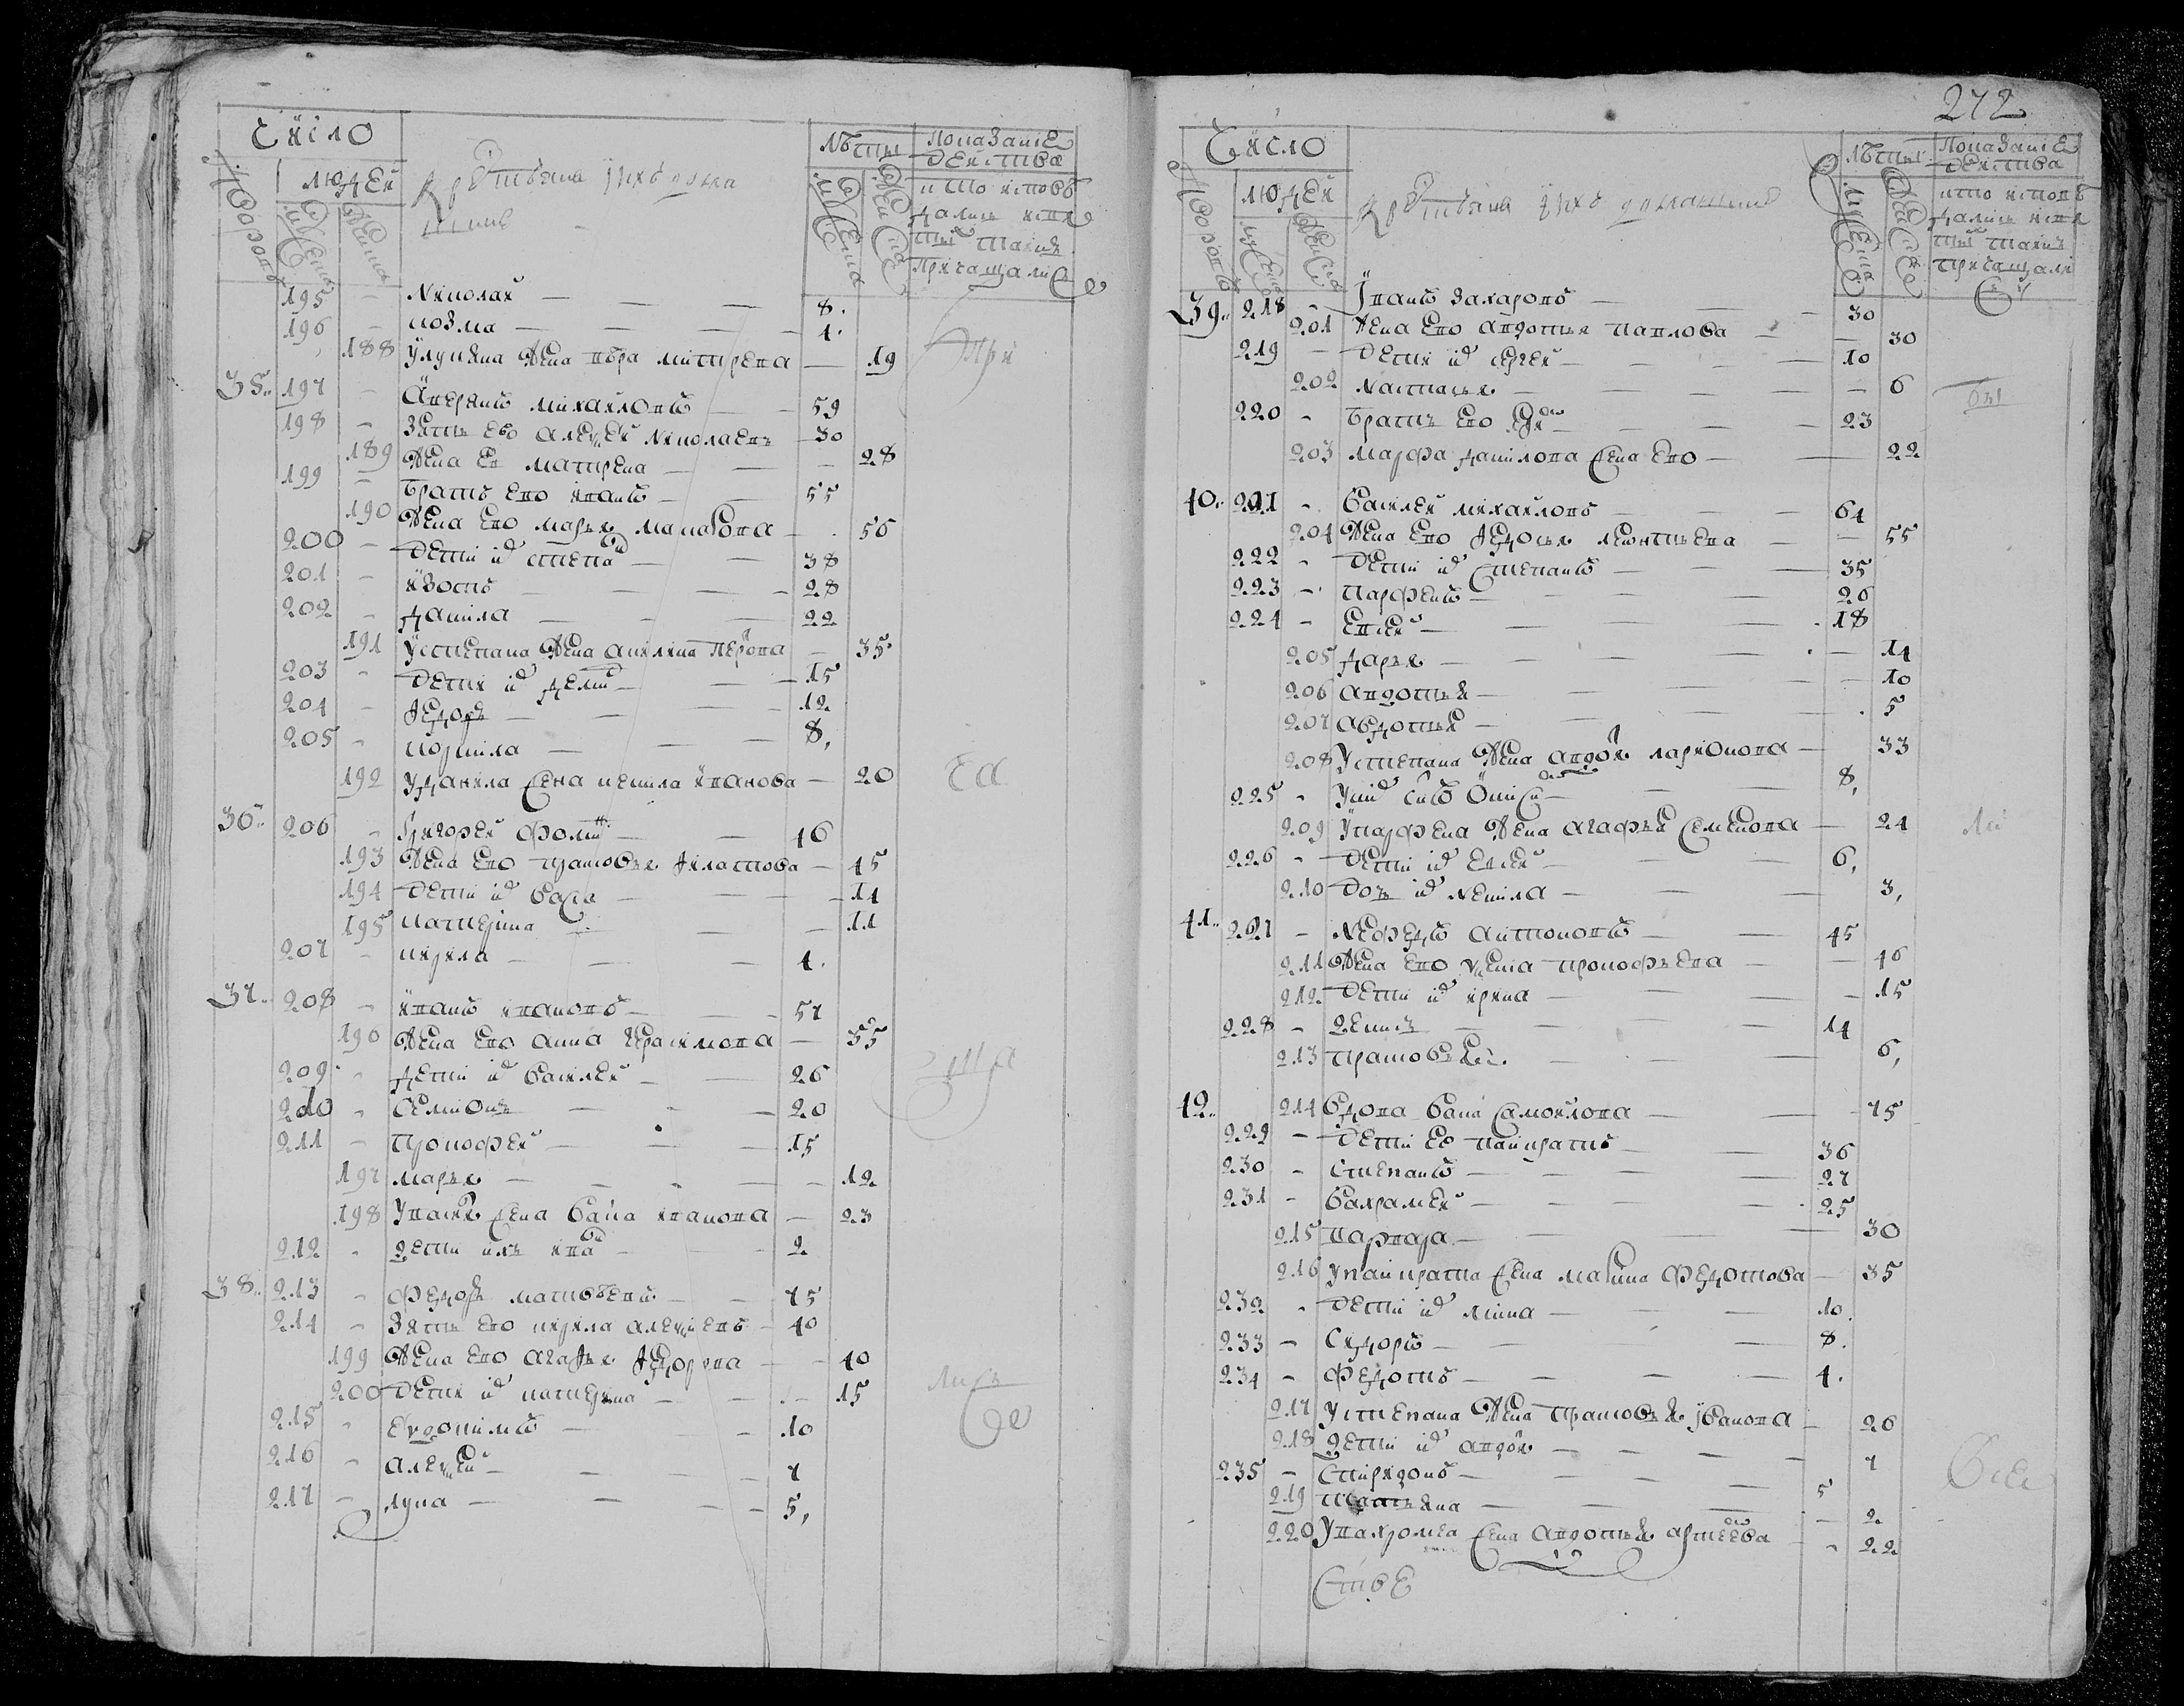 Число
Дворовъ
людей
мужеска
женска
Крестьяня и ихъ дома
шние
Лѣты
мужеска
женска
показание
действа
кто исповѣ
дались и свя
тыхъ таинъ
причащалис
195 Николай 8.
196 козма 4.
188 У лукяна жена вѣра митирева 19
35. 197 Аверянъ михайловъ 59
198 зять ево алексѣй николаевъ 30
189 жена ея матрена 28
199 братъ ево иванъ 55
190 жена ево марья макарова 56
200 дети их степа 38
201 изотъ 28
202 данила 22
191 У степана жена акилина 35
203 дети их 15
204 федоръ 12
205 корнила 8,
192 У данила жена ненила иванова 20
36. 206 Григорей фоми 46
193 жена ево прасковья филатова 45
194 дети их вара 14
195 катерина 11
207 кирила 4.
37. 208 иванъ ивановъ 57
196 жена ево анна герасимова 55
209 дети их василей 26
210 семионъ 20
211 прокофей 15
197 марья 12
198 У жена иванова 23
212 дети ихъ ива 2
38. 213 федоръ матвѣевъ 75
214 зять ево кирила алексѣевъ 40
199 жена ево агафья федорова 40
200 дети их катерина 15
215 евдокимъ 10
216 алексѣй 7
217 лука 5,
При
ча
ща
лись
272
Число
Дворовъ
людей
мужеска
женска
Крестьяня и ихъ домашние
Лѣты
мужеска
женска
показание
действа
кто исповѣ
дались и свя
тыхъ таинъ
причащали
с
39. 218 Иванъ захаровъ 30
201 жена ево авдотья павлова 30
219 дети их сергей 10
202 настасья 6
220 братъ ево 23
203 марфа данилова жена ево 22
40. 221 василей михайловъ 64
204 жена ево федосья леонтьева 55
222 дети их степанъ 35
223 парфенъ 26
224 евсей 18
205 дарья 14
206 авдотья 10
207 авдотья 5
208 У степана жена ларионова 33
225 У них сынъ 8,
209 У парфена жена агафья семенова 24
226 дети их елсей 6,
210 дочь их ненила 3,
41. 227 Нефедъ антоновъ 45
211 жена ево прокофьева 46
212 дети их ирина 15
228 денисъ 14
213 прасковья 6,
42. 214 вдова самойлова 75
229 дети ее панкратъ 36
230 степанъ 27
231 вахрамей 25
215 варвара 30
216 У панкрата жена марина федотова 35
232 дети их 10.
233 сидоръ 8.
234 федотъ 4.
217 У степана жена прасковья иванова 26
218 дети их 7
235 спиридонъ 5
219 татьяна 2
220 У вахромея жена авдотья 22
бы
ли
все